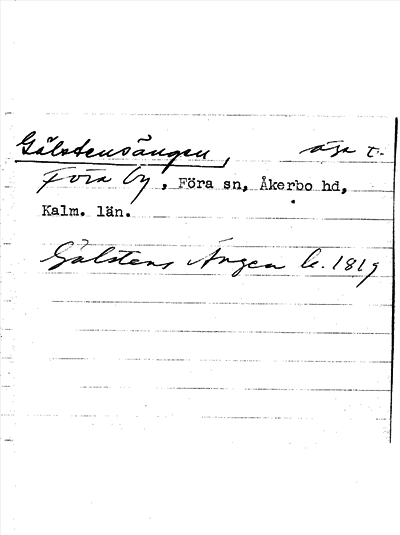 Gålstensängen, äga t.
Föra by, Föra sn, Åkerbo hd,
Kalm. län.
Gålstens Ängen k. 1819